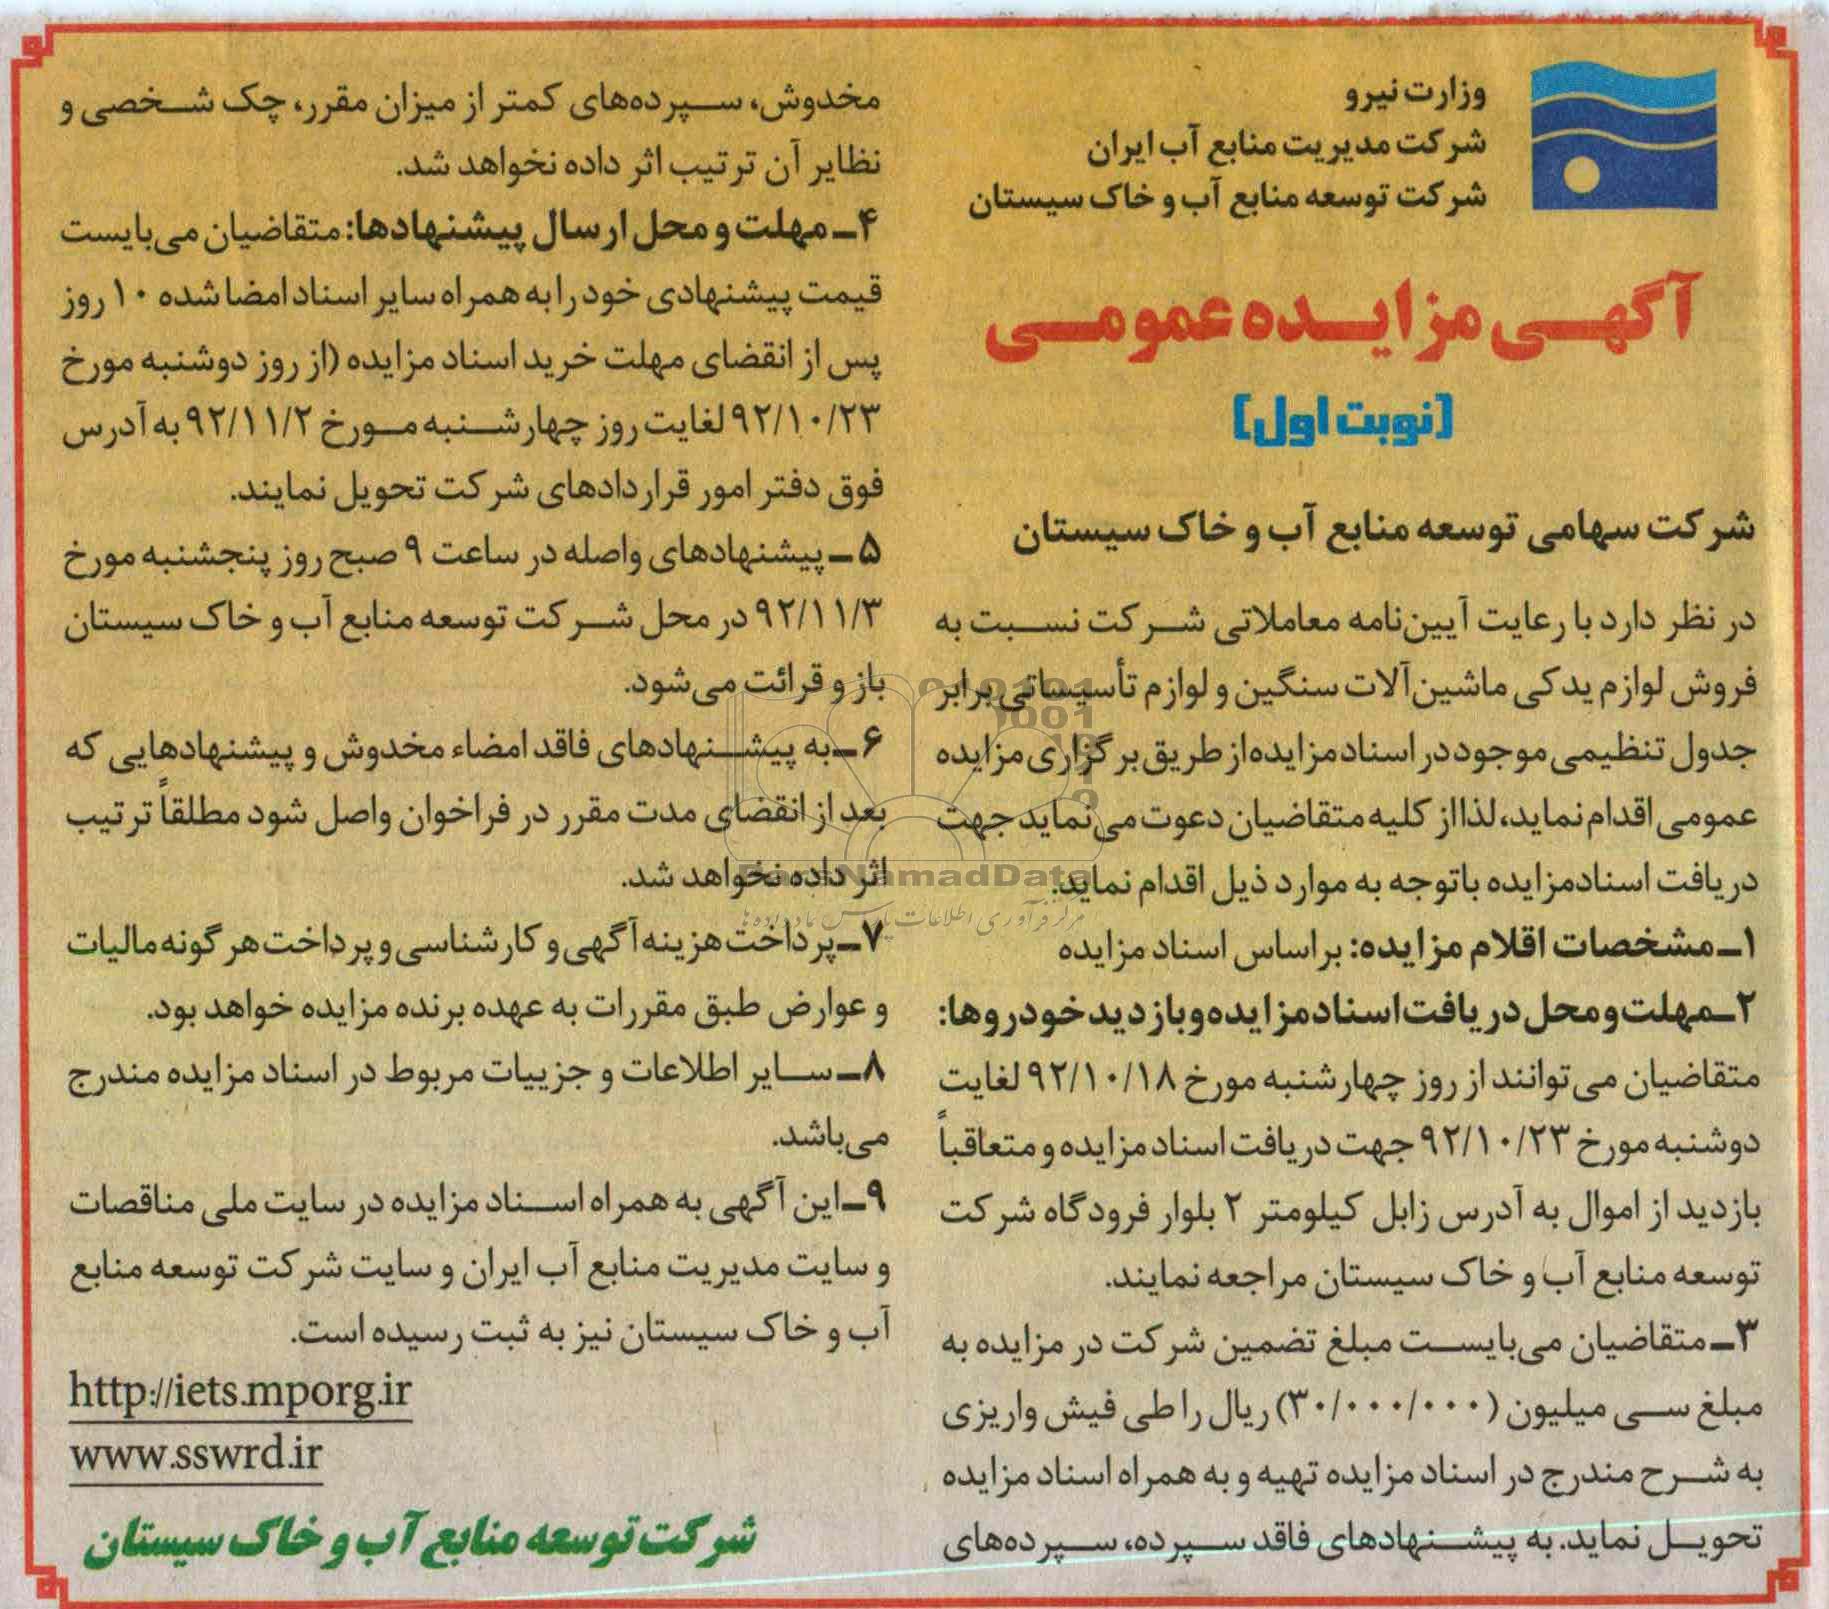 وزارت نیرو
شرکت مدیریت منابع آب ایران
شرکت توسعه منابع آب و خاک سیستان
آگهی مزایده عمومی
(نوبت اول)
شرکت سهامی توسعه منابع آب و خاک سیستان
در نظر دارد با رعایت آیین‌نامه معاملاتی شرکت نسبت به
فروش لوازم یدکی ماشین‌آلات سنگین و لوازم تأسیساتی برابر
جدول تنظیمی موجود در اسناد مزایده از طریق برگزاری مزایده
عمومی اقدام نماید، لذا از کلیه متقاضیان دعوت می‌نماید جهت
دریافت اسناد مزایده باتوجه به موارد ذیل اقدام نماید:
۱ـ مشخصات اقلام مزایده: براساس اسناد مزایده
۲ـ مهلت و محل دریافت اسناد مزایده و بازدید خودروها:
متقاضیان می‌توانند از روز چهارشنبه مورخ ۹۲/۱۰/۱۸ لغایت
دوشنبه مورخ ۹۲/۱۰/۲۳ جهت دریافت اسناد مزایده و متعاقباً
بازدید از اموال به آدرس زابل کیلومتر ۲ بلوار فرودگاه شرکت
توسعه منابع آب و خاک سیستان مراجعه نمایند.
۳ـ متقاضیان می‌بایست مبلغ تضمین شرکت در مزایده به
مبلغ سی میلیون (۳۰/۰۰۰/۰۰۰) ریال را طی فیش واریزی
به شرح مندرج در اسناد مزایده تهیه و به همراه اسناد مزایده
تحویل نماید. به پیشنهادهای فاقد سپرده، سپرده‌های
مخدوش، سپرده‌های کمتر از میزان مقرر، چک شخصی و
نظایر آن ترتیب اثر داده نخواهد شد.
۴ـ مهلت و محل ارسال پیشنهادها: متقاضیان می‌بایست
قیمت پیشنهادی خود را به همراه سایر اسناد امضا شده ۱۰ روز
پس از انقضای مهلت خرید اسناد مزایده (از روز دوشنبه مورخ
۹۲/۱۰/۲۳ لغایت روز چهارشنبه مورخ ۹۲/۱۱/۲ به آدرس
فوق دفتر امور قراردادهای شرکت تحویل نمایند.
۵ـ پیشنهادهای واصله در ساعت ۹ صبح روز پنجشنبه مورخ
۹۲/۱۱/۳ در محل شرکت توسعه منابع آب و خاک سیستان
باز و قرائت می‌شود.
۶ـ به پیشنهادهای فاقد امضاء مخدوش و پیشنهادهایی که
بعد از انقضای مدت مقرر در فراخوان واصل شود مطلقاً ترتیب
اثر داده نخواهد شد.
۷ـ پرداخت هزینه آگهی و کارشناسی و پرداخت هرگونه مالیات
و عوارض طبق مقررات به عهده برنده مزایده خواهد بود.
۸ـ سایر اطلاعات و جزییات مربوط در اسناد مزایده مندرج
می‌باشد.
۹ـ این آگهی به همراه اسناد مزایده در سایت ملی مناقصات
و سایت مدیریت منابع آب ایران و سایت شرکت توسعه منابع
آب و خاک سیستان نیز به ثبت رسیده است.
http://iets.mporg.ir
www.sswrd.ir
شرکت توسعه منابع آب و خاک سیستان
ParsNamadData
مرکز فرآوری اطلاعات پارس نماد داده‌ها